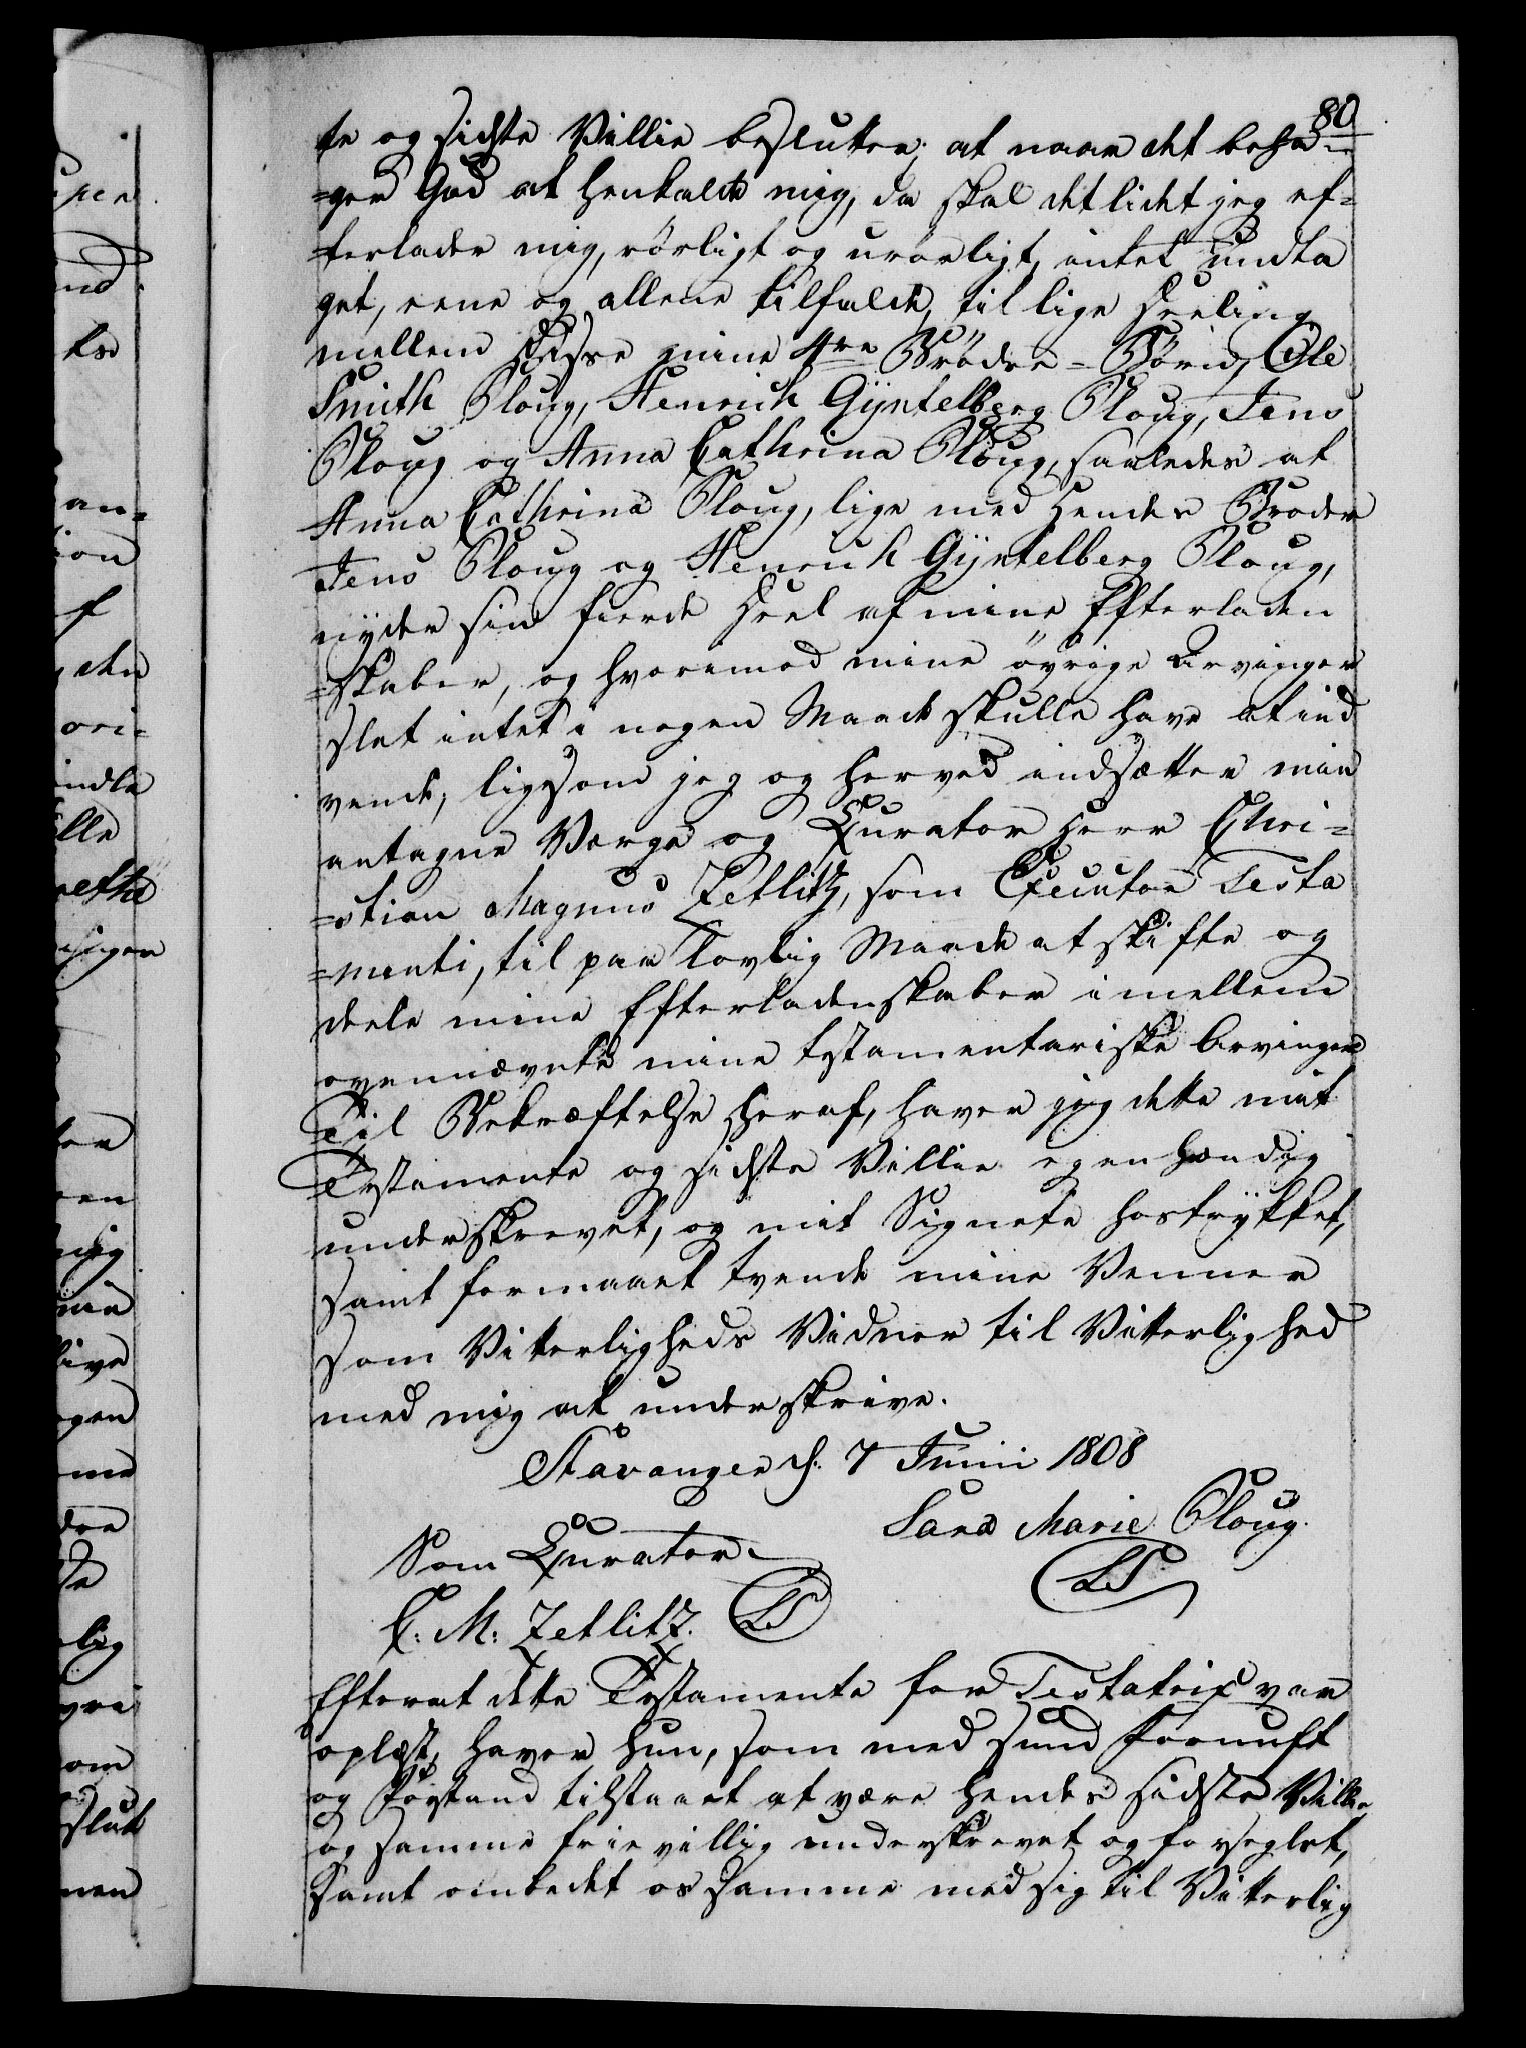 80
te og sidste Villie beslutter; at naar det beha-
=ger Gud at henkalde mig, da skal det lidet jeg ef-
=terlader mig, rörligt og urörligt, intet undta
get, eene og allene tilfalde, til lige Deeling
mellem disse mine 4re Brödre-Börn, Ole
Smith Ploug, Henrich Gÿntelberg Ploug, Jens
Ploug og Anna Cathrina Ploug, saaledes at
Anna Cathrina Ploug, lige med hendes Broder
Jens Ploug og Henrich Gÿntelberg Ploug,
nyder sin fierde Deel af mine Efterladen
=skaber, og hvorimod mine övrige Arvinger
slet intet i nogen Maade skulle have at ind
vende, ligesom jeg og herved indsætter min
antagne Værge og Curator Herr Chri-
=stian Magnus Zetlitz, som Executor Testa
=menti, til paa lovlig Maade at skifte og
deele mine Efterladenskaber imellem
ovennævnte mine testamentariske Arvinger
Til Bekræftelse heraf, haver jeg dette mit
Testamente og sidste Villie egenhændig
underskrevet, og mit Signete hostrykket,
samt formaaet tvende mine Venner
som Vitterligheds Vidner til Vitterlighed
med mig at underskrive.
Stavanger d. 7 Junii 1808
Sara Marie Ploug.
Som Curator
LS
C: M: Zetlitz. LS
Efterat dette Testamente for Testatrix var
oplæst, haver hun, som med sund Fornuft
og Forstand tilstaaet at være hendes sidste Villie
og samme frievillig underskrevet og forseglet,
samt ombedet os samme med sig til Vitterlig